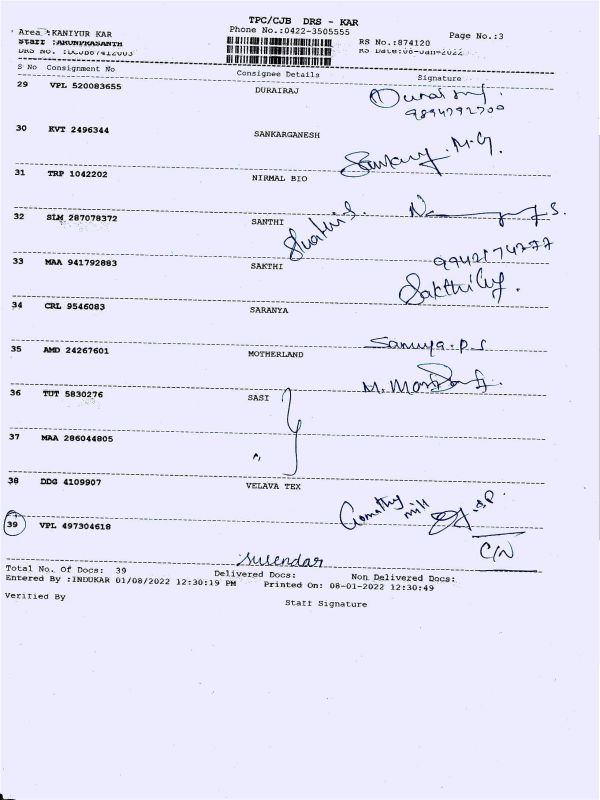 TPC/CJB DRS - KAR
Area :KANIYUR KAR Phone No.:0422-3505555 Page No.:3
Staff :ARUNPRASANTH RS No.:874120
DRS No. :DCJB87412003 RS Date:08-Jan-2022
S No Consignment No Consignee Details Signature
29 VPL 520083655 DURAIRAJ
9894792700
30 KVT 2496344 SANKARGANESH
M.G.
31 TRP 1042202 NIRMAL BIO
32 SLM 287078372 SANTHI
S.
33 MAA 941792883 SAKTHI
Sakthi
34 CRL 9546083 SARANYA
35 AMD 24267601 MOTHERLAND Saranya.P.S
36 TUT 5830276 SASI M.
37 MAA 286044805
38 DDG 4109907 VELAVA TEX
Gomathy mill
39 VPL 497304618
C/N
surendar
Total No. Of Docs: 39 Delivered Docs: Non Delivered Docs:
Entered By :INDUKAR 01/08/2022 12:30:19 PM Printed On: 08-01-2022 12:30:49
Verified By Staff Signature